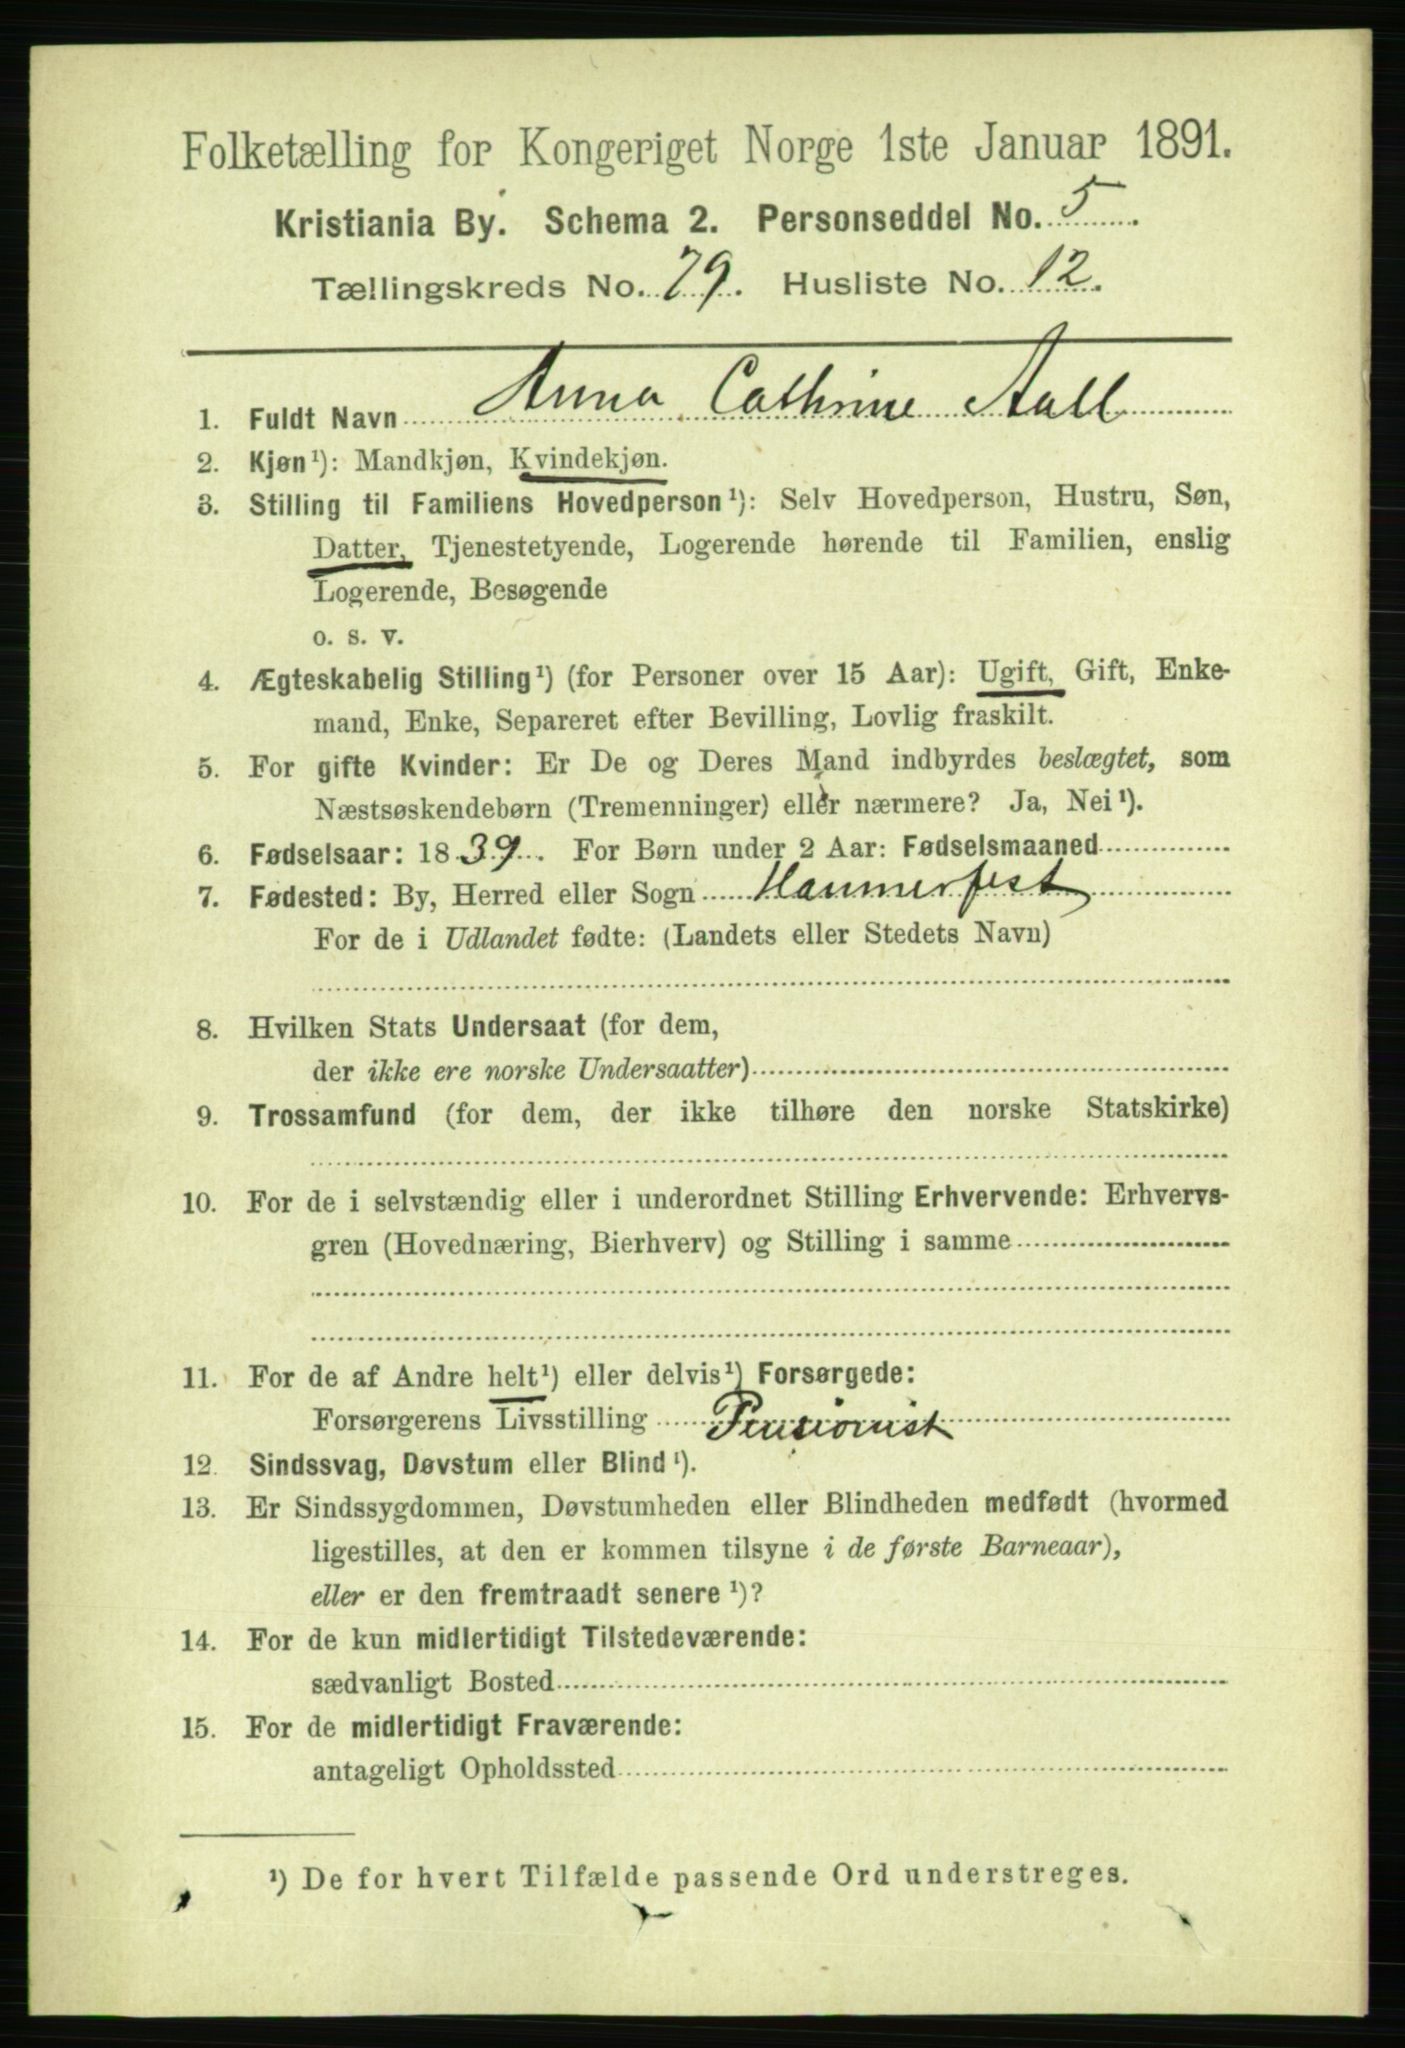 Folketælling for Kongeriget Norge 1ste Januar 1891.
Kristiania By. Schema 2. Personseddel No. 5
Tællingskreds No. 79. Husliste No. 12.
1. Fuldt Navn Anna Cathrine Aall
2. Kjøn¹): Mandkjøn, Kvindekjøn.
3. Stilling til Familiens Hovedperson¹): Selv Hovedperson, Hustru, Søn,
Datter, Tjenestetyende, Logerende hørende til Familien, enslig
Logerende, Besøgende
o. s. v.
4. Ægteskabelig Stilling¹) (for Personer over 15 Aar): Ugift, Gift, Enke-
mand, Enke, Separeret efter Bevilling, Lovlig fraskilt.
5. For gifte Kvinder: Er De og Deres Mand indbyrdes beslægtet, som
Næstsøskendebørn (Tremenninger) eller nærmere? Ja, Nei¹).
6. Fødselsaar: 1839. For Børn under 2 Aar: Fødselsmaaned
7. Fødested: By, Herred eller Sogn Hammerfest
For de i Udlandet fødte: (Landets eller Stedets Navn)
8. Hvilken Stats Undersaat (for dem,
der ikke ere norske Undersaatter)
9. Trossamfund (for dem, der ikke tilhøre den norske Statskirke)
10. For de i selvstændig eller i underordnet Stilling Erhvervende: Erhvervs-
gren (Hovednæring, Bierhverv) og Stilling i samme
11. For de af Andre helt¹) eller delvis¹) Forsørgede:
Forsørgerens Livsstilling Pensionist
12. Sindssvag, Døvstum eller Blind¹).
13. Er Sindssygdommen, Døvstumheden eller Blindheden medfødt (hvormed
ligestilles, at den er kommen tilsyne i de første Barneaar),
eller er den fremtraadt senere¹)?
14. For de kun midlertidigt Tilstedeværende:
sædvanligt Bosted
15. For de midlertidigt Fraværende:
antageligt Opholdssted
¹) De for hvert Tilfælde passende Ord understreges.